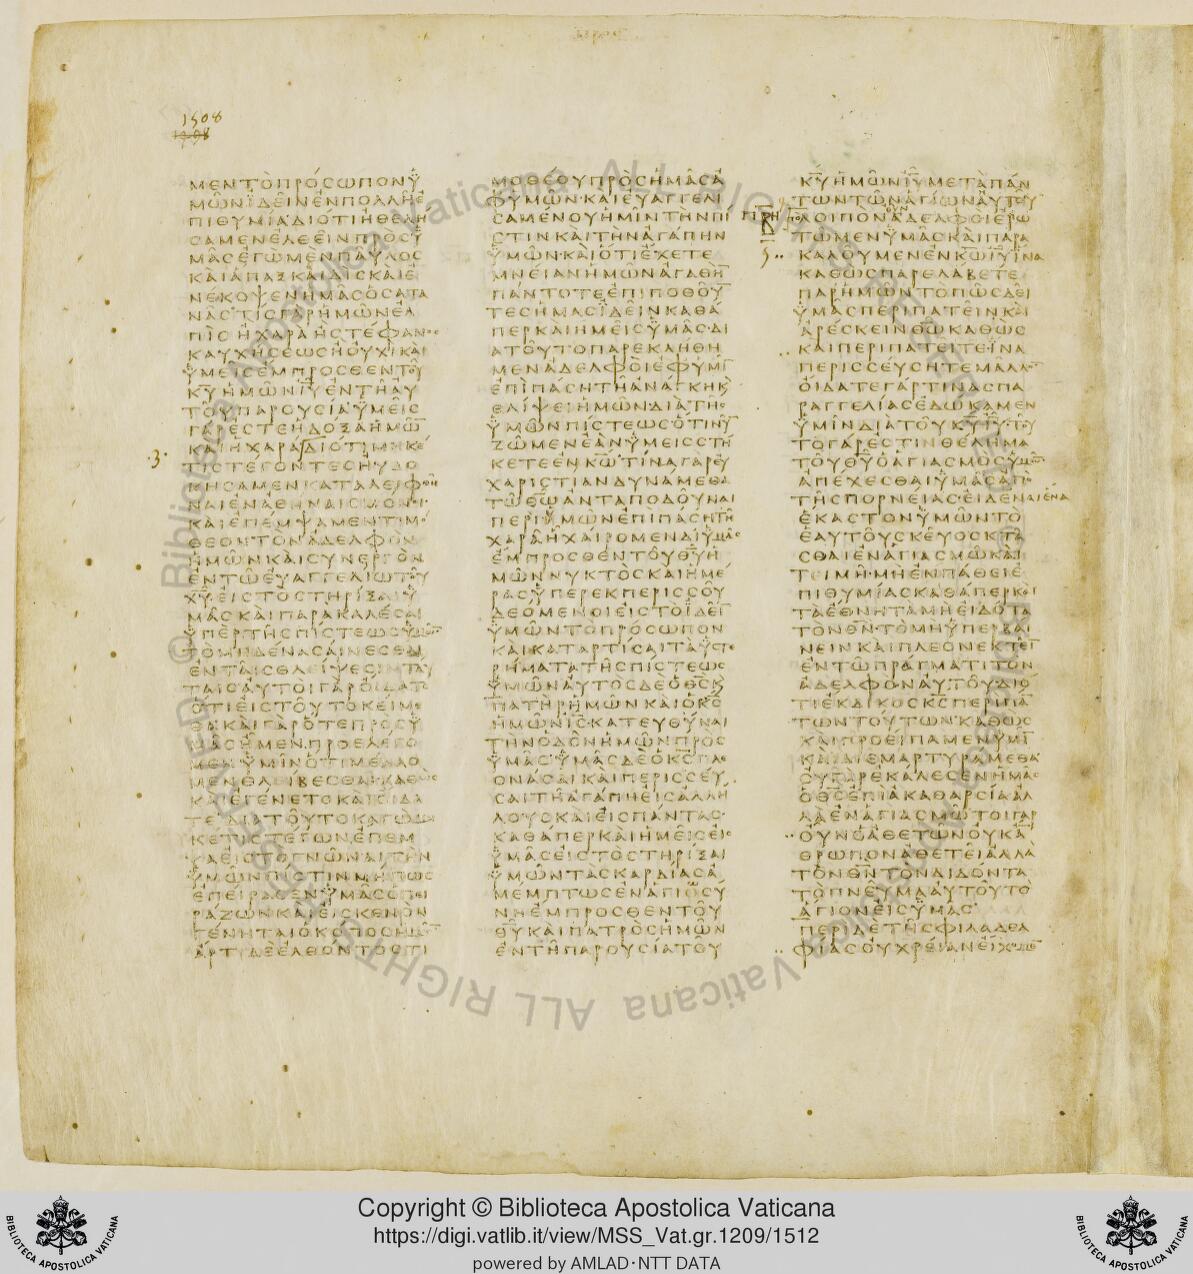 1508
ΜΕΝΤΟΠΡΟΣΩΠΟΝΫ
ΜΩΝΪΔΕΙΝΕΝΠΟΛΛΗΕ
ΠΙΘΥΜΙΑΔΙΟΤΙΗΘΕΛΗ
ΣΑΜΕΝΕΛΘΕΙΝΠΡΟΣΫ
ΜΑΣΕΓΩΜΕΝΠΑΥΛΟΣ
ΚΑΙΑΠΑΞΚΑΙΔΙΣΚΑΙΕ
ΝΕΚΟΨΕΝΗΜΑΣΟΣΑΤΑ
ΝΑΣΤΙΣΓΑΡΗΜΩΝΕΛ
ΠΙΣΗΧΑΡΑΗΣΤΕΦΑΝΟΣ
ΚΑΥΧΗΣΕΩΣΗΟΥΧΙΚΑΙ
ΫΜΕΙΣΕΜΠΡΟΣΘΕΝΤΟΥ
Κ̅Υ̅ΗΜΩΝΙ̅Υ̅ΕΝΤΗΑΥ
ΤΟΥΠΑΡΟΥΣΙΑΫΜΕΙΣ
ΓΑΡΕΣΤΕΗΔΟΞΑΗΜΩ̅
ΚΑΙΗΧΑΡΑΔΙΟΤΙΜΗΚΕ
ΤΙΣΤΕΓΟΝΤΕΣΗΥΔΟ
ΚΗΣΑΜΕΝΚΑΤΑΛΕΙΦΘΗ
ΝΑΙΕΝΑΘΗΝΑΙΣΜΟΝΟΙ
ΚΑΙΕΠΕΜΨΑΜΕΝΤΙΜΟ
ΘΕΟΝΤΟΝΑΔΕΛΦΟΝ
ΗΜΩΝΚΑΙΣΥΝΕΡΓΟΝ
ΕΝΤΩΕΥΑΓΓΕΛΙΩΤΟΥ
Χ̅Υ̅ΕΙΣΤΟΣΤΗΡΙΞΑΙΫ
ΜΑΣΚΑΙΠΑΡΑΚΑΛΕΣΑΙ
ΫΠΕΡΤΗΣΠΙΣΤΕΩΣΫΜΩΝ
ΤΟΜΗΔΕΝΑΣΑΙΝΕΣΘΑΙ
ΕΝΤΑΙΣΘΛΕΙΨΕΣΙΝΤΑΥ
ΤΑΙΣΑΥΤΟΙΓΑΡΟΙΔΑΤΕ
ΟΤΙΕΙΣΤΟΥΤΟΚΕΙΜΕ
ΘΑΚΑΙΓΑΡΟΤΕΠΡΟΣΫ
ΜΑΣΗΜΕΝΠΡΟΕΛΕΓΟ
ΜΕΝΫΜΙΝΟΤΙΜΕΛΛΟ
ΜΕΝΘΛΕΙΒΕΣΘΑΙΚΑΘΩΣ
ΚΑΙΕΓΕΝΕΤΟΚΑΙΟΙΔΑ
ΤΕΔΙΑΤΟΥΤΟΚΑΓΩΜΗ
ΚΕΤΙΣΤΕΓΩΝΕΠΕΜ
ΨΑΕΙΣΤΟΓΝΩΝΑΙΤΗΝ
ΫΜΩΝΠΙΣΤΙΝΜΗΠΩΣ
ΕΠΕΙΡΑΣΕΝΫΜΑΣΟΠΕΙ
ΡΑΖΩΝΚΑΙΕΙΣΚΕΝΟΝ
ΓΕΝΗΤΑΙΟΚΟΠΟΣΗΜΩΝ
ΑΡΤΙΔΕΕΛΘΟΝΤΟΣΤΙ
ΜΟΘΕΟΥΠΡΟΣΗΜΑΣΑ
ΦΥΜΩΝΚΑΙΕΥΑΓΓΕΛΙ
ΣΑΜΕΝΟΥΗΜΙΝΤΗΝΠΙ
ΣΤΙΝΚΑΙΤΗΝΑΓΑΠΗΝ
ΫΜΩΝΚΑΙΟΤΙΕΧΕΤΕ
ΜΝΕΙΑΝΗΜΩΝΑΓΑΘΗ̅
ΠΑΝΤΟΤΕΕΠΙΠΟΘΟΥ̅
ΤΕΣΗΜΑΣΪΔΕΙΝΚΑΘΑ
ΠΕΡΚΑΙΗΜΕΙΣΫΜΑΣΔΙ
ΑΤΟΥΤΟΠΑΡΕΚΛΗΘΗ
ΜΕΝΑΔΕΛΦΟΙΕΦΥΜΙ̅
ΕΠΙΠΑΣΗΤΗΑΝΑΓΚΗΚ
ΘΛΙΨΕΙΗΜΩΝΔΙΑΤΗΣ
ΫΜΩΝΠΙΣΤΕΩΣΟΤΙΝΥ̅
ΖΩΜΕΝΕΑΝΫΜΕΙΣΣΤΗ
ΚΕΤΕΕΝΚ̅Ω̅ΤΙΝΑΓΑΡΕΥ
ΧΑΡΙΣΤΙΑΝΔΥΝΑΜΕΘΑ
ΤΩΘ̅Ω̅ΑΝΤΑΠΟΔΟΥΝΑΙ
ΠΕΡΙΫΜΩΝΕΠΙΠΑΣΗΤΗ
ΧΑΡΑΗΧΑΙΡΟΜΕΝΔΙΫΜΑΣ
ΕΜΠΡΟΣΘΕΝΤΟΥΘ̅Υ̅Η
ΜΩΝΝΥΚΤΟΣΚΑΙΗΜΕ
ΡΑΣΫΠΕΡΕΚΠΕΡΙΣΣΟΥ
ΔΕΟΜΕΝΟΙΕΙΣΤΟΪΔΕΙ̅
ΫΜΩΝΤΟΠΡΟΣΩΠΟΝ
ΚΑΙΚΑΤΑΡΤΙΣΑΙΤΑΫΣΤΕ
ΡΗΜΑΤΑΤΗΣΠΙΣΤΕΩΣ
ΫΜΩΝΑΥΤΟΣΔΕΟΘ̅Σ̅Κ
ΠΑΤΗΡΗΜΩΝΚΑΙΟΚ̅Σ̅
ΗΜΩΝΙ̅Σ̅ΚΑΤΕΥΘΥΝΑΙ
ΤΗΝΟΔΟΝΗΜΩΝΠΡΟΣ
ΫΜΑΣΫΜΑΣΔΕΟΚ̅Σ̅ΠΛΕ
ΟΝΑΣΑΙΚΑΙΠΕΡΙΣΣΕΥ
ΣΑΙΤΗΑΓΑΠΗΕΙΣΑΛΛΗ
ΛΟΥΣΚΑΙΕΙΣΠΑΝΤΑΣ
ΚΑΘΑΠΕΡΚΑΙΗΜΕΙΣΕΙΣ
ΫΜΑΣΕΙΣΤΟΣΤΗΡΙΞΑΙ
ΫΜΩΝΤΑΣΚΑΡΔΙΑΣΑ
ΜΕΜΠΤΩΣΕΝΑΓΙΩΣΥ
ΝΗΕΜΠΡΟΣΘΕΝΤΟΥ
Θ̅Υ̅ΚΑΙΠΑΤΡΟΣΗΜΩΝ
ΕΝΤΗΠΑΡΟΥΣΙΑΤΟΥ
Κ̅Υ̅ΗΜΩΝΙ̅Υ̅ΜΕΤΑΠΑΝ
ΤΩΝΤΩΝΑΓΙΩΝΑΥΤΟΥ
ΛΟΙΠΟΝΑΔΕΛΦΟΙΕΡΩ
ΤΩΜΕΝΫΜΑΣΚΑΙΠΑΡΑ
ΚΑΛΟΥΜΕΝΕΝΚ̅Ω̅Ι̅Υ̅ΪΝΑ
ΚΑΘΩΣΠΑΡΕΛΑΒΕΤΕ
ΠΑΡΗΜΩΝΤΟΠΩΣΔΕΙ
ΫΜΑΣΠΕΡΙΠΑΤΕΙΝΚΑΙ
ΑΡΕΣΚΕΙΝΘ̅Ω̅ΚΑΘΩΣ
ΚΑΙΠΕΡΙΠΑΤΕΙΤΕΪΝΑ
ΠΕΡΙΣΣΕΥΣΗΤΕΜΑΛΛΟ̅
ΟΙΔΑΤΕΓΑΡΤΙΝΑΣΠΑ
ΡΑΓΓΕΛΙΑΣΕΔΩΚΑΜΕΝ
ΫΜΙΝΔΙΑΤΟΥΚ̅Υ̅Ι̅Υ̅ΤΟΥ
ΤΟΓΑΡΕΣΤΙΝΘΕΛΗΜΑ
ΤΟΥΘ̅Υ̅ΟΑΓΙΑΣΜΟΣΫΜΩΝ
ΑΠΕΧΕΣΘΑΙΫΜΑΣΑΠΟ
ΤΗΣΠΟΡΝΕΙΑΣΕΙΔΕΝΑΙΕΝΑ
ΕΚΑΣΤΟΝΫΜΩΝΤΟ
ΕΑΥΤΟΥΣΚΕΥΟΣΚΤΑ
ΣΘΑΙΕΝΑΓΙΑΣΜΩΚΑΙ
ΤΕΙΜΗΜΗΕΝΠΑΘΕΙΕ
ΠΙΘΥΜΙΑΣΚΑΘΑΠΕΡΚΑΙ
ΤΑΕΘΝΗΤΑΜΗΕΙΔΟΤΑ
ΤΟΝΘ̅Ν̅ΤΟΜΗΫΠΕΡΒΑΙ
ΝΕΙΝΚΑΙΠΛΕΟΝΕΚΤΕΙ̅
ΕΝΤΩΠΡΑΓΜΑΤΙΤΟΝ
ΑΔΕΛΦΟΝΑΥΤΟΥΔΙΟ
ΤΙΕΚΔΙΚΟΣΚ̅Σ̅ΠΕΡΙΠΑ̅
ΤΩΝΤΟΥΤΩΝΚΑΘΩΣ
ΚΑΙΠΡΟΕΙΠΑΜΕΝΫΜΙ̅
ΚΑΙΔΙΕΜΑΡΤΥΡΑΜΕΘΑ
ΟΥΓΑΡΕΚΑΛΕΣΕΝΗΜΑΣ
ΟΘ̅Σ̅ΕΠΙΑΚΑΘΑΡΣΙΑΑΛ
ΛΑΕΝΑΓΙΑΣΜΩΤΟΙΓΑΡ
ΟΥΝΟΑΘΕΤΩΝΟΥΚΑ̅
ΘΡΩΠΟΝΑΘΕΤΕΙΑΛΛΑ
ΤΟΝΘ̅Ν̅ΤΟΝΔΙΔΟΝΤΑ
ΤΟΠΝΕΥΜΑΑΥΤΟΥΤΟ
ΑΓΙΟΝΕΙΣΫΜΑΣ
ΠΕΡΙΔΕΤΗΣΦΙΛΑΔΕΛ
ΦΙΑΣΟΥΧΡΕΙΑΝΕΙΧΟΜΕΝ
Copyright © Biblioteca Apostolica Vaticana
https://digi.vatlib.it/view/MSS_Vat.gr.1209/1512
powered by AMLAD·NTT DATA
BIBLIOTECA APOSTOLICA VATICANA
BIBLIOTECA APOSTOLICA VATICANA